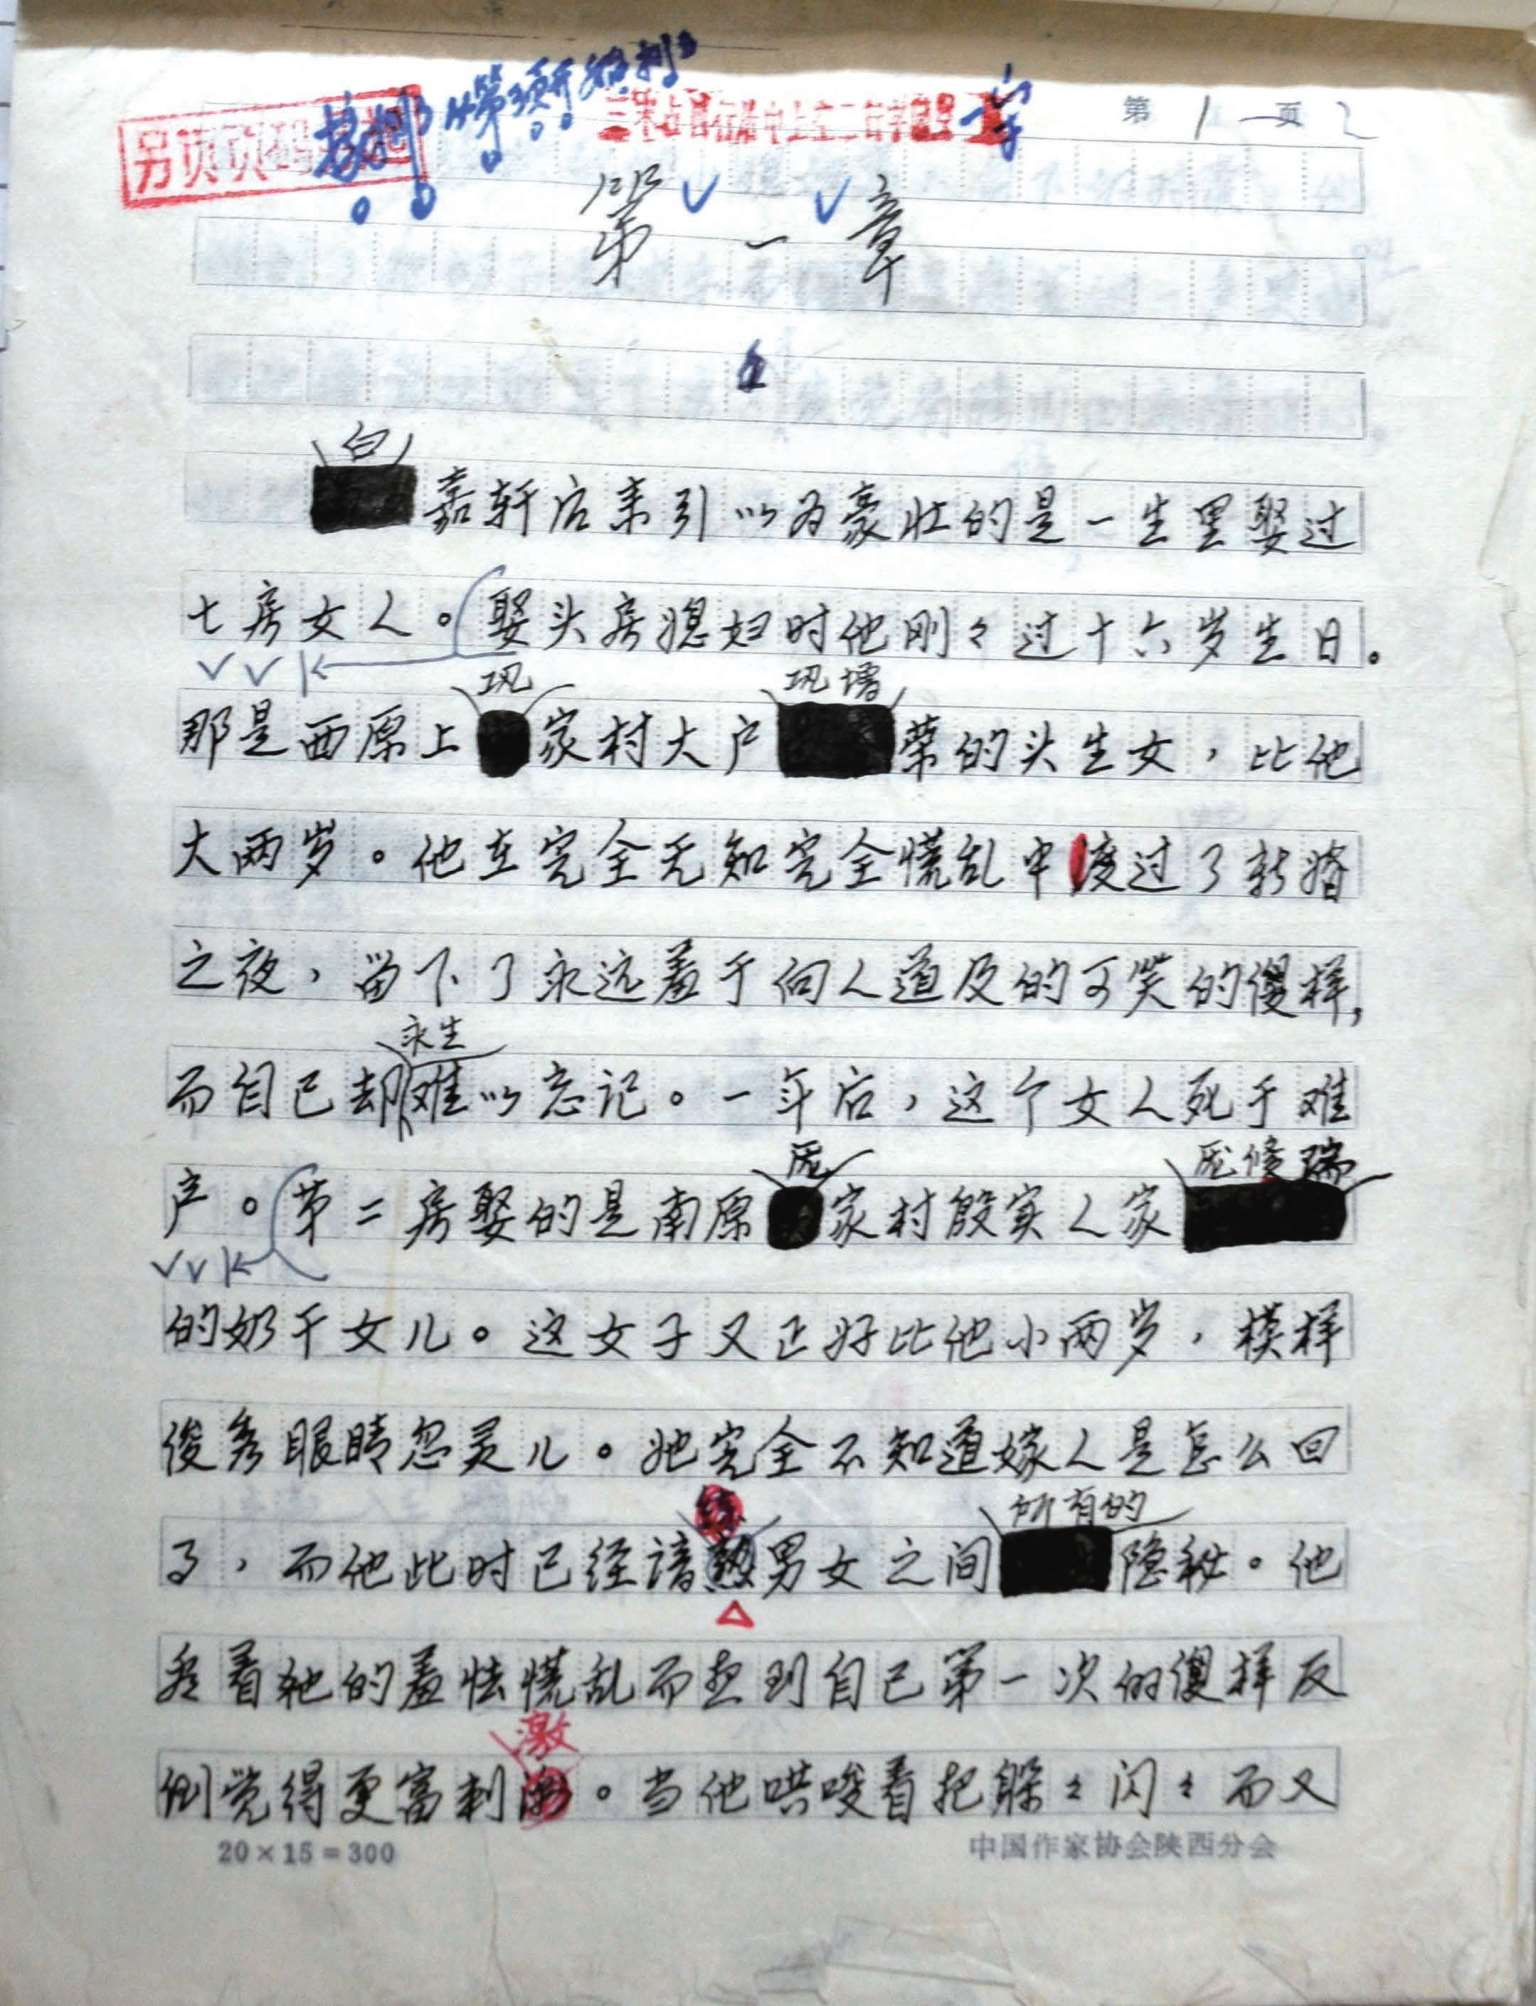 第1页 2
第一章
白
嘉轩后来引以为豪壮的是一生里娶过
七房女人。娶头房媳妇时他刚々过十六岁生日。
巩 巩增
那是西原上家村大户荣的头生女，比他
大两岁。他在完全无知完全慌乱中渡过了新婚
之夜，留下了永远羞于向人道及的可笑的傻样，
永生
而自己却难以忘记。一年后，这个女人死于难
庞 庞修瑞
产。第二房娶的是南原家村殷实人家
的奶干女儿。这女子又正好比他小两岁，模样
俊秀眼睛忽灵儿。她完全不知道嫁人是怎么回
所有的
事，而他此时已经谙熟男女之间隐秘。他
看着她的羞怯慌乱而想到自己第一次的傻样反
激
倒觉得更富刺。当他哄唆着把躲々闪々而又
20×15=300 中国作家协会陕西分会